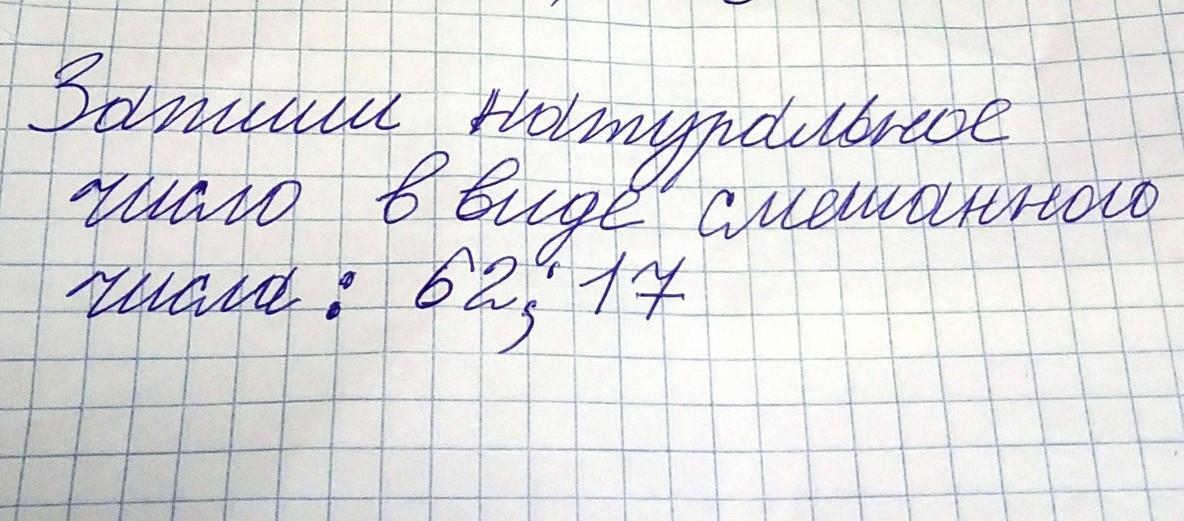 Запиши натуральное
число в виде смешанного
числа: 62; 17